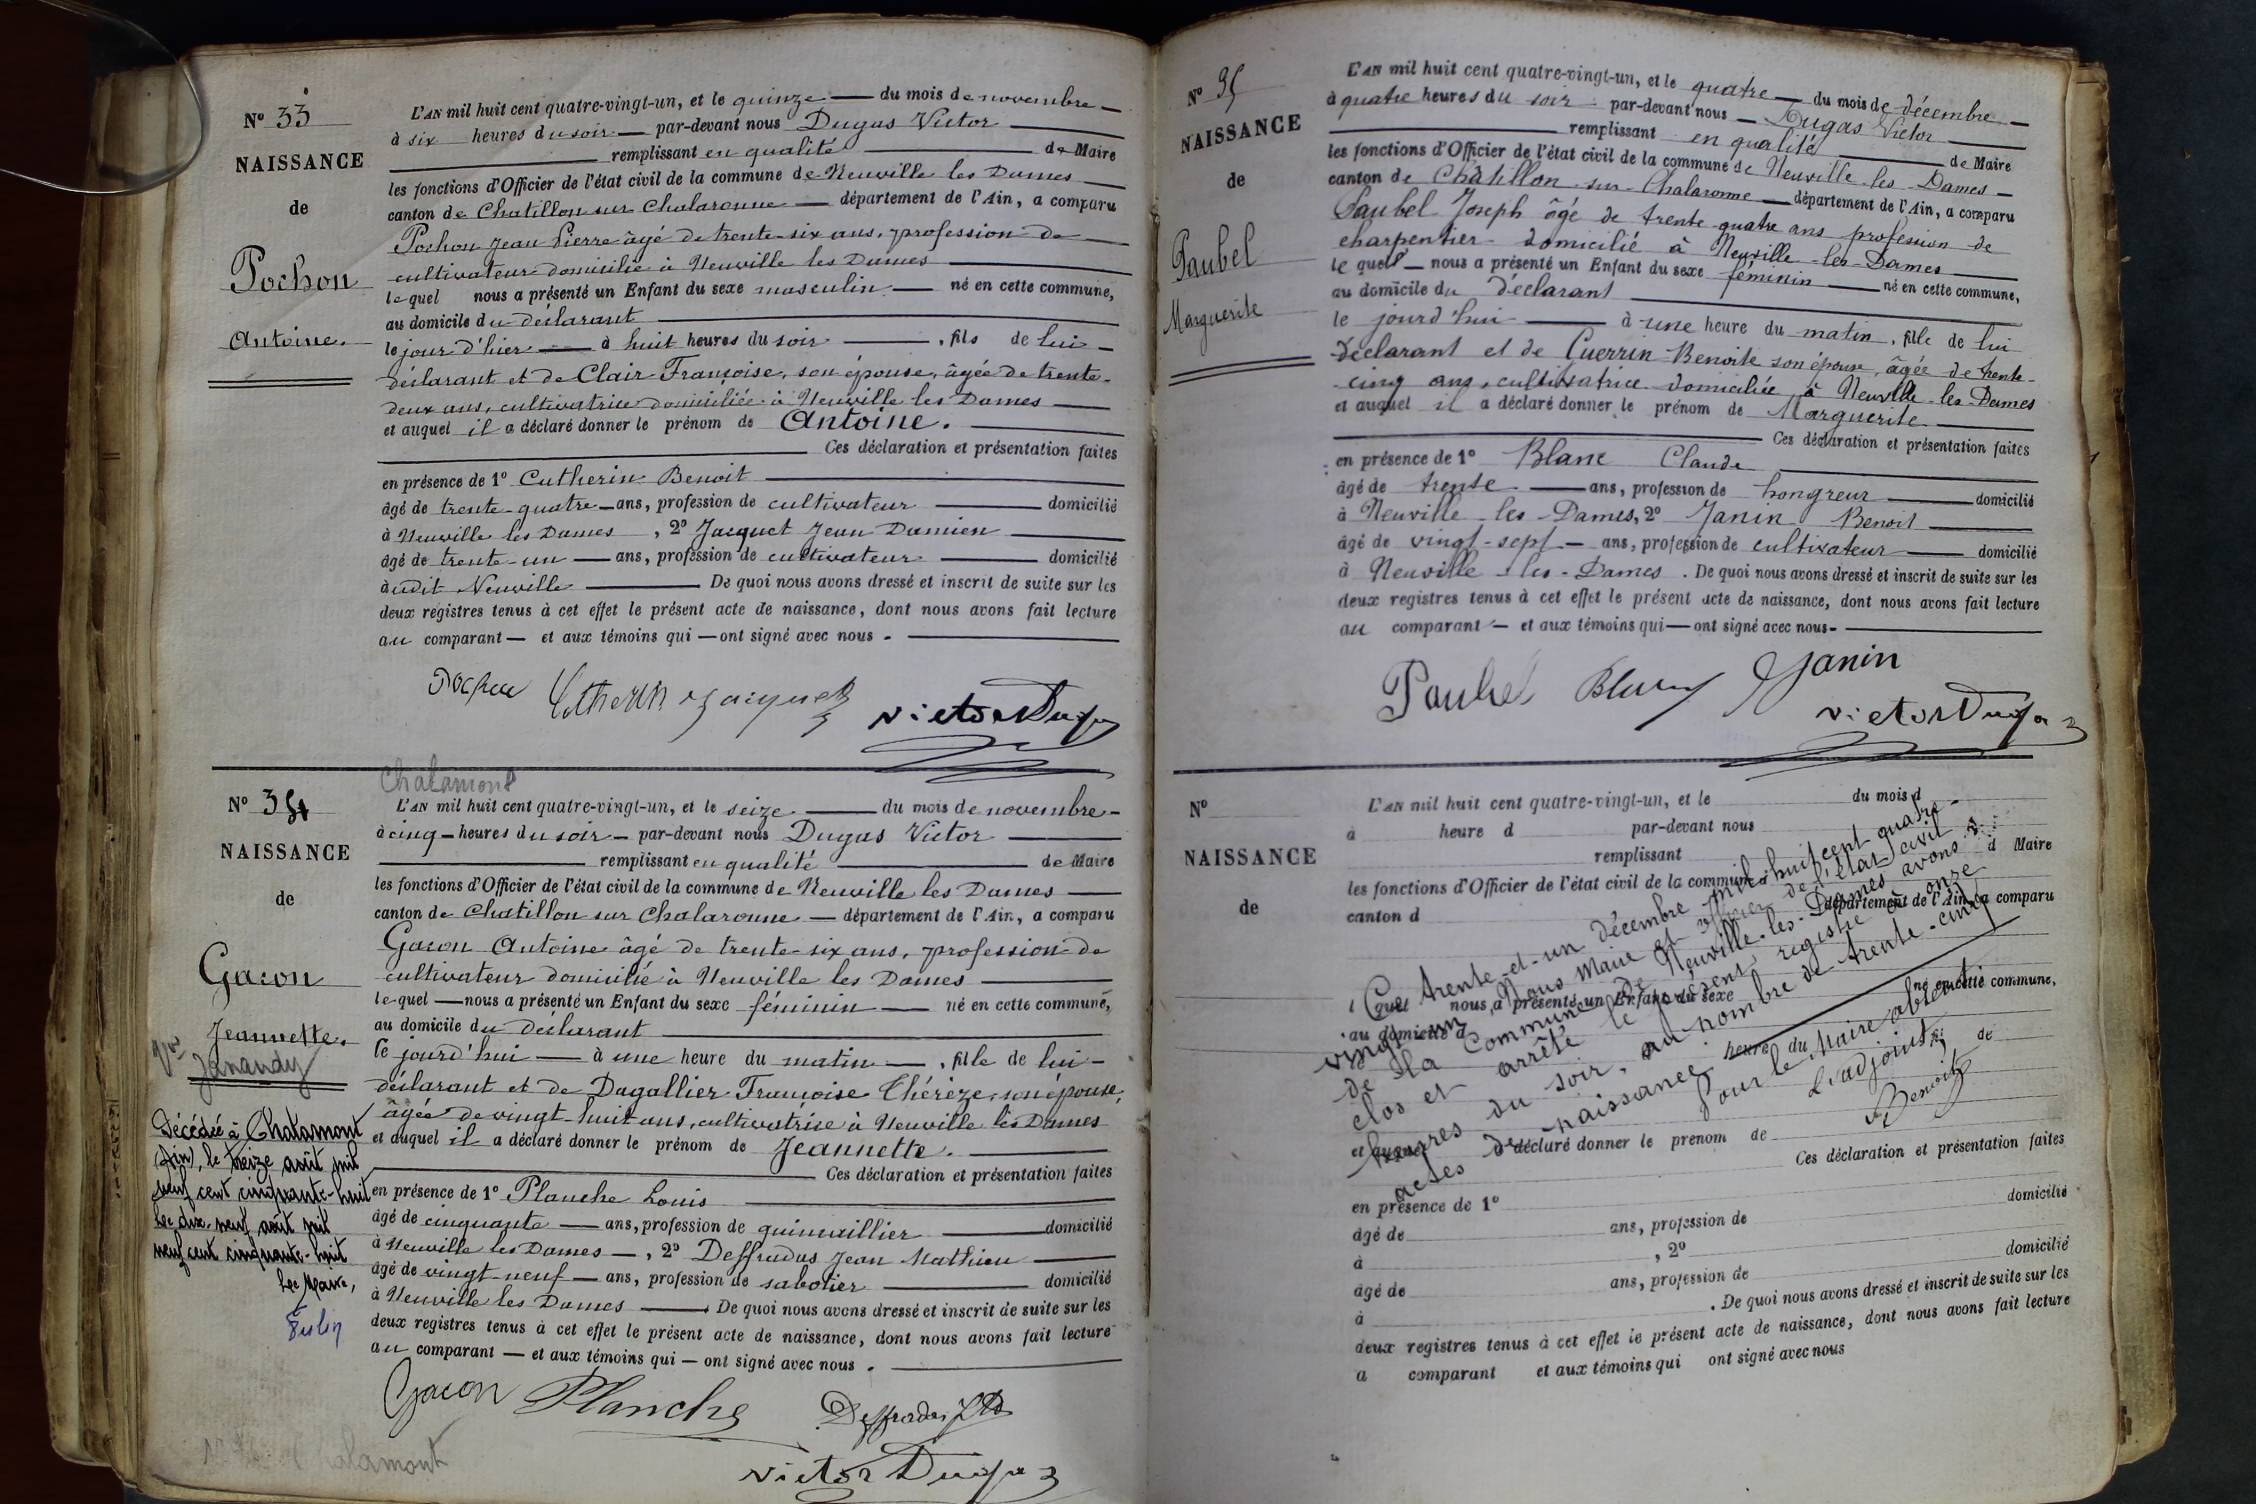 N° 33
NAISSANCE
de
Pochon
Antoine.
L'AN mil huit cent quatre-vingt-un, et le quinze du mois de novembre
à six heures du soir par-devant nous Dugas Victor
remplissant en qualité de Maire
les fonctions d'Officier de l'état civil de la commune de Neuville les Dames
canton de Chatillon sur Chalaronne département de l'Ain, a comparu
Pochon Jean Pierre âgé de trente-six ans, profession de
cultivateur domicilié à Neuville les Dames
lequel nous a présenté un Enfant du sexe masculin né en cette commune,
au domicile du déclarant
le jour d'hier à huit heures du soir, fils de lui
déclarant et de Clair Françoise, son épouse, âgée de trente-
deux ans, cultivatrice domiciliée à Neuville les Dames
et auquel il a déclaré donner le prénom de Antoine.
Ces déclaration et présentation faites
en présence de 1° Cutherin Benoit
âgé de trente-quatre ans, profession de cultivateur domicilié
à Neuville les Dames, 2° Jacquet Jean Damien
âgé de trente-un ans, profession de cultivateur domicilié
audit Neuville De quoi nous avons dressé et inscrit de suite sur les
deux registres tenus à cet effet le présent acte de naissance, dont nous avons fait lecture
au comparant et aux témoins qui ont signé avec nous.
Pochon Cutherin Jacquet Victor Dugas
Chalamont
N° 34
NAISSANCE
de
Gacon
Jeannette.
Vve
Janaudy
Décédée à Chalamont
(Ain), le treize août mil
neuf cent cinquante-huit
Le dix-neuf août mil
neuf cent cinquante-huit
Le Maire,
L'AN mil huit cent quatre-vingt-un, et le seize du mois de novembre
à cinq heures du soir par-devant nous Dugas Victor
remplissant en qualité de Maire
les fonctions d'Officier de l'état civil de la commune de Neuville les Dames
canton de Chatillon sur Chalaronne département de l'Ain, a comparu
Gacon Antoine âgé de trente-six ans, profession de
cultivateur domicilié à Neuville les Dames
lequel nous a présenté un Enfant du sexe féminin né en cette commune,
au domicile du déclarant
le jourd'hui à une heure du matin, fille de lui
déclarant et de Dagallier Françoise Thérèze, son épouse,
âgée de vingt-huit ans, cultivatrice à Neuville les Dames
et auquel il a déclaré donner le prénom de Jeannette.
Ces déclaration et présentation faites
en présence de 1° Planche Louis
âgé de cinquante ans, profession de quincaillier domicilié
à Neuville les Dames, 2° Deffradas Jean Mathieu
âgé de vingt-neuf ans, profession de sabotier domicilié
à Neuville les Dames. De quoi nous avons dressé et inscrit de suite sur les
deux registres tenus à cet effet le présent acte de naissance, dont nous avons fait lecture
au comparant et aux témoins qui ont signé avec nous.
Gacon Planche Deffradas
Victor Dugas
Chalamont
N° 35
NAISSANCE
de
Paubel
Marguerite
L'AN mil huit cent quatre-vingt-un, et le quatre du mois de décembre
à quatre heures du soir par-devant nous Dugas Victor
remplissant en qualité de Maire
les fonctions d'Officier de l'état civil de la commune de Neuville-les-Dames
canton de Châtillon-sur-Chalaronne département de l'Ain, a comparu
Paubel Joseph âgé de trente-quatre ans profession de
charpentier domicilié à Neuville-les-Dames
lequel nous a présenté un Enfant du sexe féminin né en cette commune,
au domicile du déclarant
le jourd'hui à une heure du matin, fille de lui
déclarant et de Guerrin Benoite son épouse, âgée de trente-
cinq ans, cultivatrice domiciliée à Neuville-les-Dames
et auquel il a déclaré donner le prénom de Marguerite.
Ces déclaration et présentation faites
en présence de 1° Blanc Claude
âgé de trente ans, profession de hongreur domicilié
à Neuville-les-Dames, 2° Janin Benoit
âgé de vingt-sept ans, profession de cultivateur domicilié
à Neuville-les-Dames. De quoi nous avons dressé et inscrit de suite sur les
deux registres tenus à cet effet le présent acte de naissance, dont nous avons fait lecture
au comparant et aux témoins qui ont signé avec nous.
Paubel Blanc Janin
Victor Dugas
N°
NAISSANCE
de
L'AN mil huit cent quatre-vingt-un, et le du mois d
à heure d par-devant nous
remplissant d Maire
les fonctions d'Officier de l'état civil de la commune d
canton d département de l'Ain, a comparu
l quel nous a présenté un Enfant du sexe né en cette commune,
au domicile d
heure du de
et auquel a déclaré donner le prénom de
Ces déclaration et présentation faites
en présence de 1°
âgé de ans, profession de domicilié
à , 2°
âgé de ans, profession de domicilié
à . De quoi nous avons dressé et inscrit de suite sur les
deux registres tenus à cet effet le présent acte de naissance, dont nous avons fait lecture
a comparant et aux témoins qui ont signé avec nous
Ce trente-et-un décembre mil huit cent quatre-
vingt un Nous Maire et officier de l'état civil
de la Commune de Neuville-les-Dames avons
clos et arrêté le présent registre à onze
heures du soir, au nombre de trente-cinq
actes de naissance
Pour le Maire absent
L'adjoint
Benoit